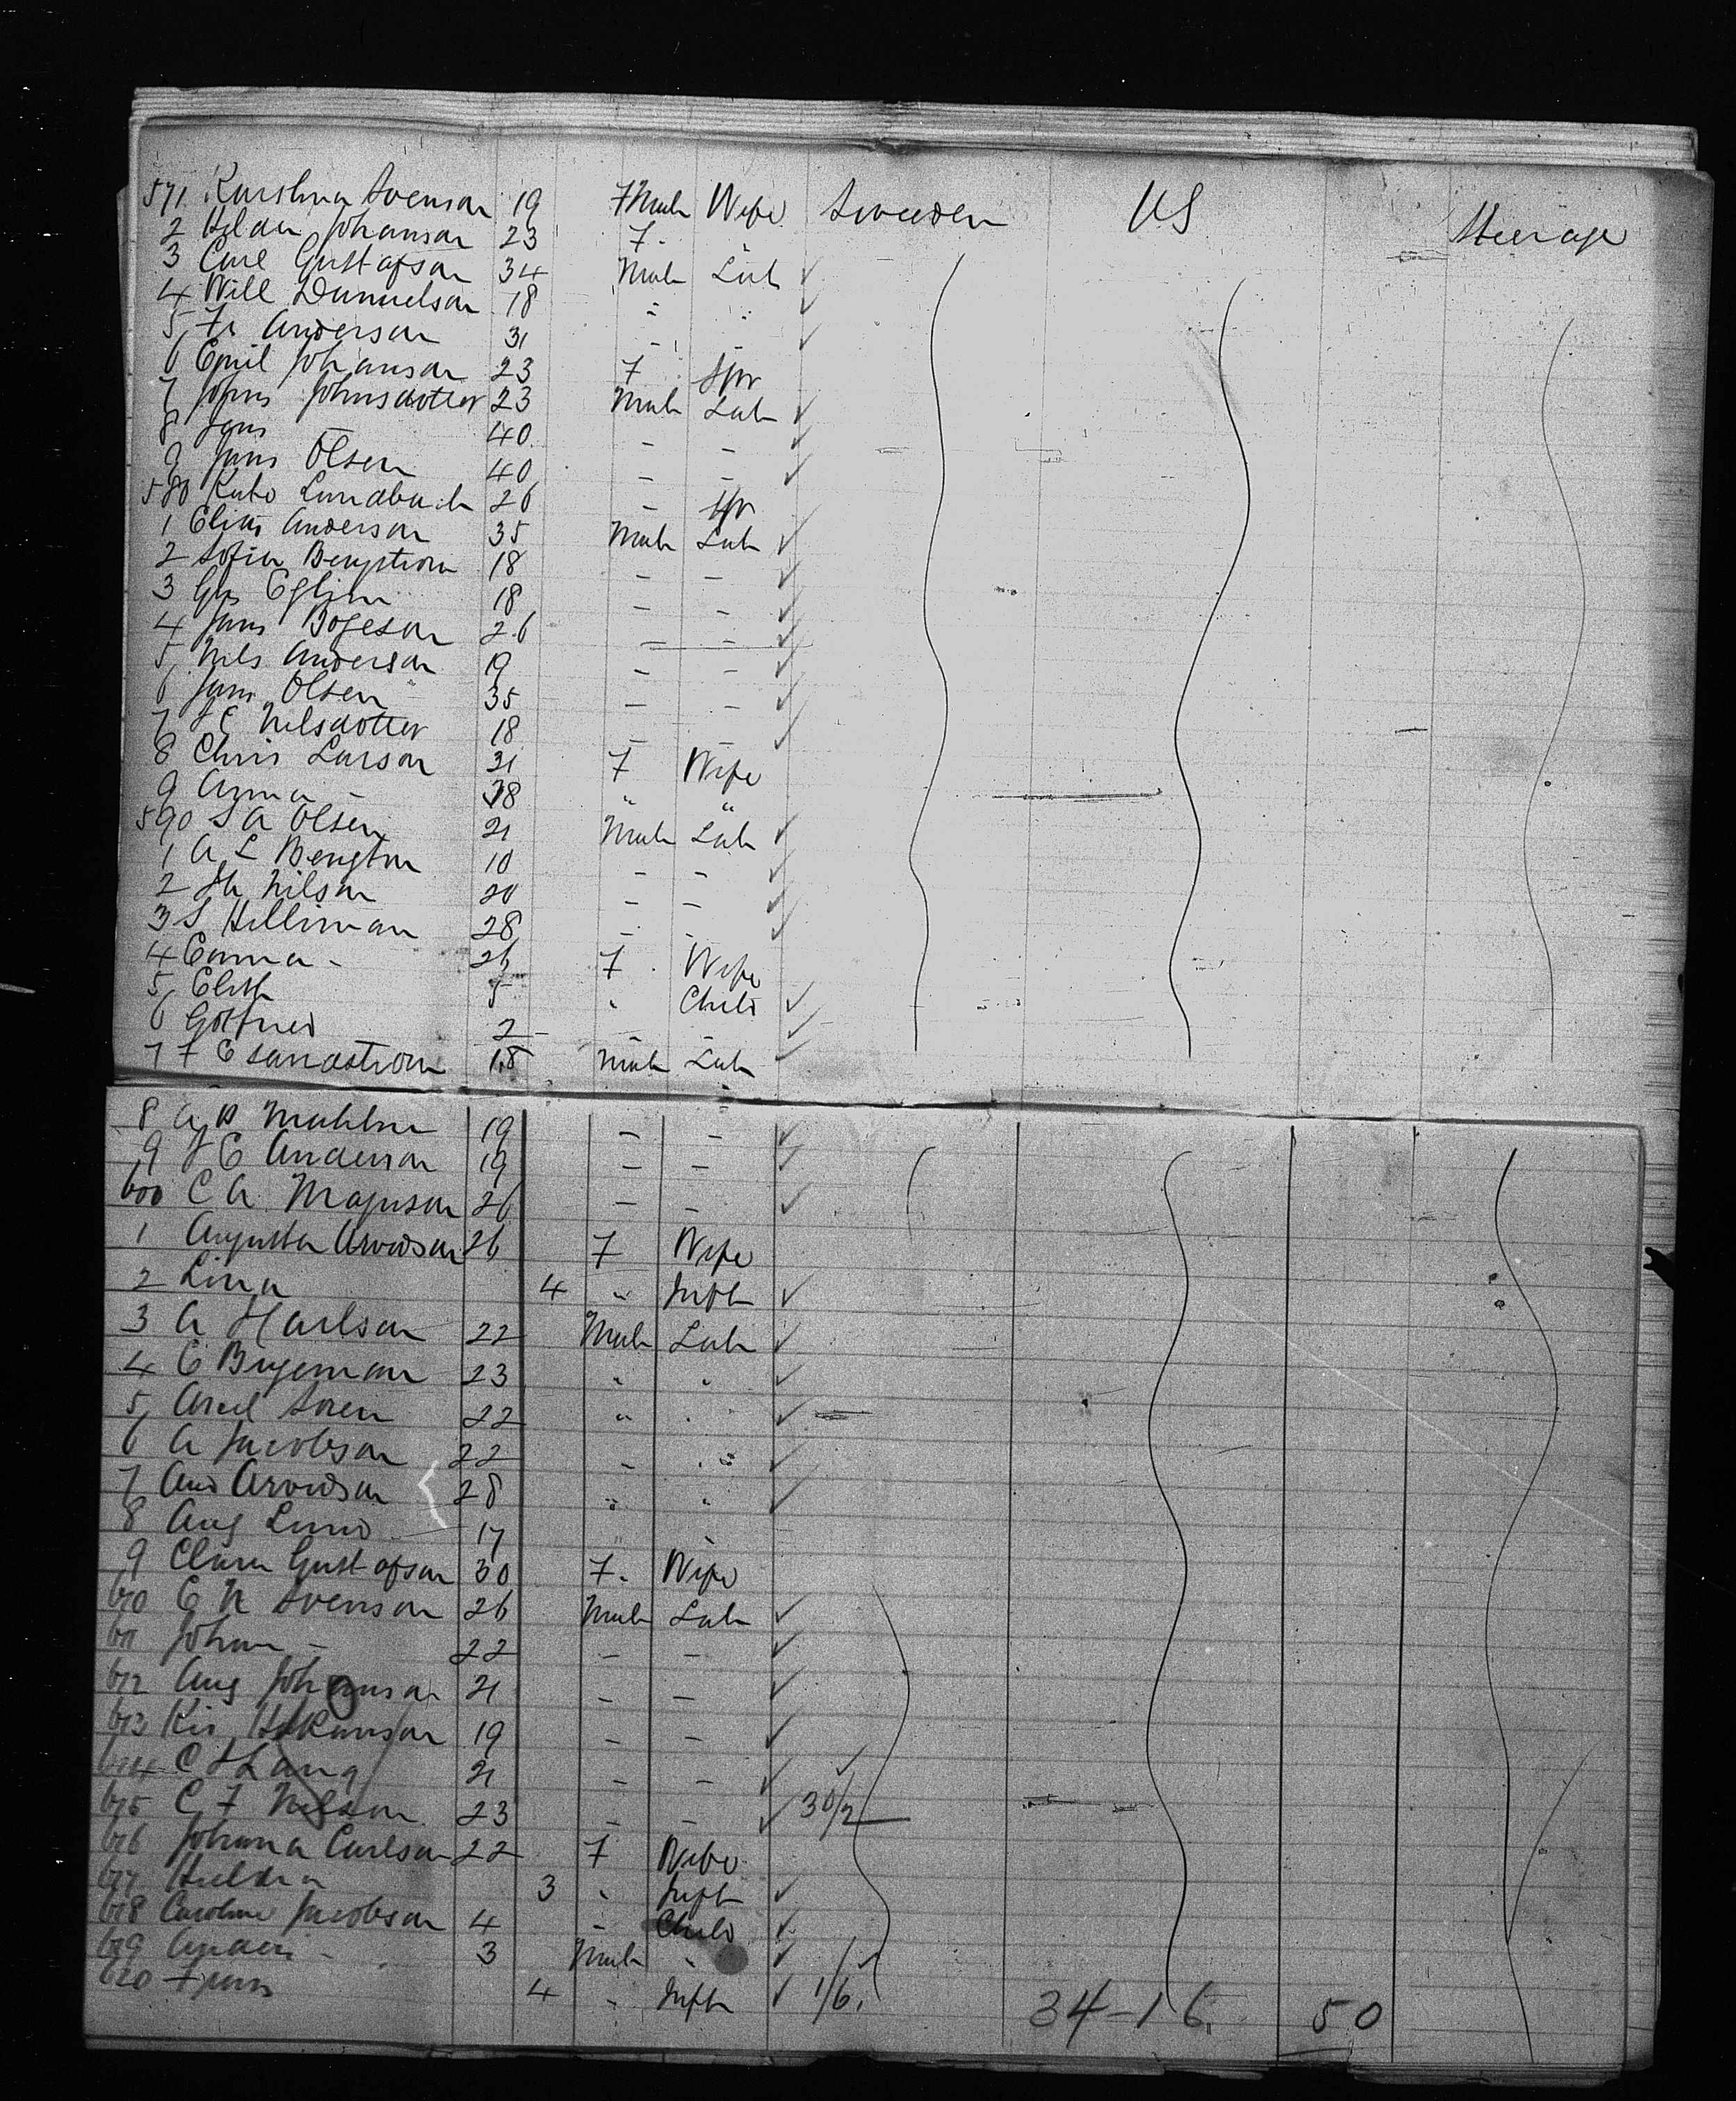 571 Karshna Svenson 19 F Male Wife Sweden US Steerage
2 Hilda Johanson 23 F
3 Carl Gustafson 34 Male Lab ✓
4 Will Danielson 18 " " ✓
5 Fr Anderson 31 - - ✓
6 Emil Johanson 23 F Spr
7 Johns Johnsdotter 23 Male Lab ✓
8 Jons - 40 - - ✓
9 Jans Olsen 40 - - ✓
580 Kate 26 - Spr
1 Elias Anderson 35 Male Lab ✓
2 Sofia Bengstrom 18 - - ✓
3 Gus 18 - - ✓
4 Jans Bogeson 26 - - ✓
5 Nils Anderson 19 - - ✓
6 Jans Olsen 35 - - ✓
7 Nilsdotter 18 - - ✓
8 Chris Larson 31 F Wife
9 Anna - 38 " "
590 S A Olsen 21 Male Lab ✓
1 A L Bengton 10 - - ✓
2 Nilson 20 - - ✓
3 S Hillirman 28 - - ✓
4 Emma - 26 F Wife
5 Elish 5 " Child ✓
6 Gotfried 2 - - ✓
7 F E Sandstrom 18 Male Lab ✓
8 A 19 - - ✓
9 J E Anderson 19 - - ✓
600 C A Magnuson 26 - - ✓
1 Augusta Arvidson 26 F Wife
2 Lina 4 " Inft ✓
3 A Karlson 22 Male Lab ✓
4 C 23 " " ✓
5 Axel Soren 22 " " ✓
6 A Jacobson 22 - " ✓
7 And Arvidson 28 " " ✓
8 Aug Lund 17 " "
9 Clara Gustafson 30 F. Wife
610 C N Svenson 26 Male Lab ✓
611 Johan - 22 - - ✓
612 Aug Johanson 21 - - ✓
613 Kis Hakanson 19 - - ✓
614 C Lang 21 - - ✓ ✓
615 C F Nelson 23 - - ✓ 30/2
616 Johanna Carlson 22 F Wife
617 Huldra 3 " Inft ✓
618 Caroline Jacobson 4 - Child ✓
619 Anders - 3 Male " ✓
620 4 " Inft ✓ 1/6. 34-16. 50